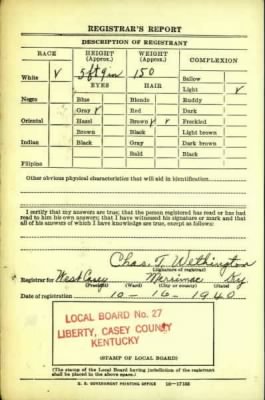 REGISTRAR'S REPORT
DESCRIPTION OF REGISTRANT
RACE HEIGHT (Approx.) WEIGHT (Approx.) COMPLEXION
White ✓ 5 ft 9 in 150 Sallow
EYES HAIR Light ✓
Negro Blue Blonde Ruddy
Gray ✓ Red Dark
Oriental Hazel Brown ✓ ✓ Freckled
Brown Black Light brown
Indian Black Gray Dark brown
Bald Black
Filipino
Other obvious physical characteristics that will aid in identification
I certify that my answers are true; that the person registered has read or has had
read to him his own answers; that I have witnessed his signature or mark and that
all of his answers of which I have knowledge are true, except as follows:
Chas. T. Wethington
(Signature of registrar)
Registrar for West Casey Merrimac Ky
(Precinct) (Ward) (City or county) (State)
Date of registration 10-16-1940
LOCAL BOARD No. 27
LIBERTY, CASEY COUNTY
KENTUCKY
(STAMP OF LOCAL BOARD)
(The stamp of the Local Board having jurisdiction of the registrant
shall be placed in the above space.)
U. S. GOVERNMENT PRINTING OFFICE 16-17105